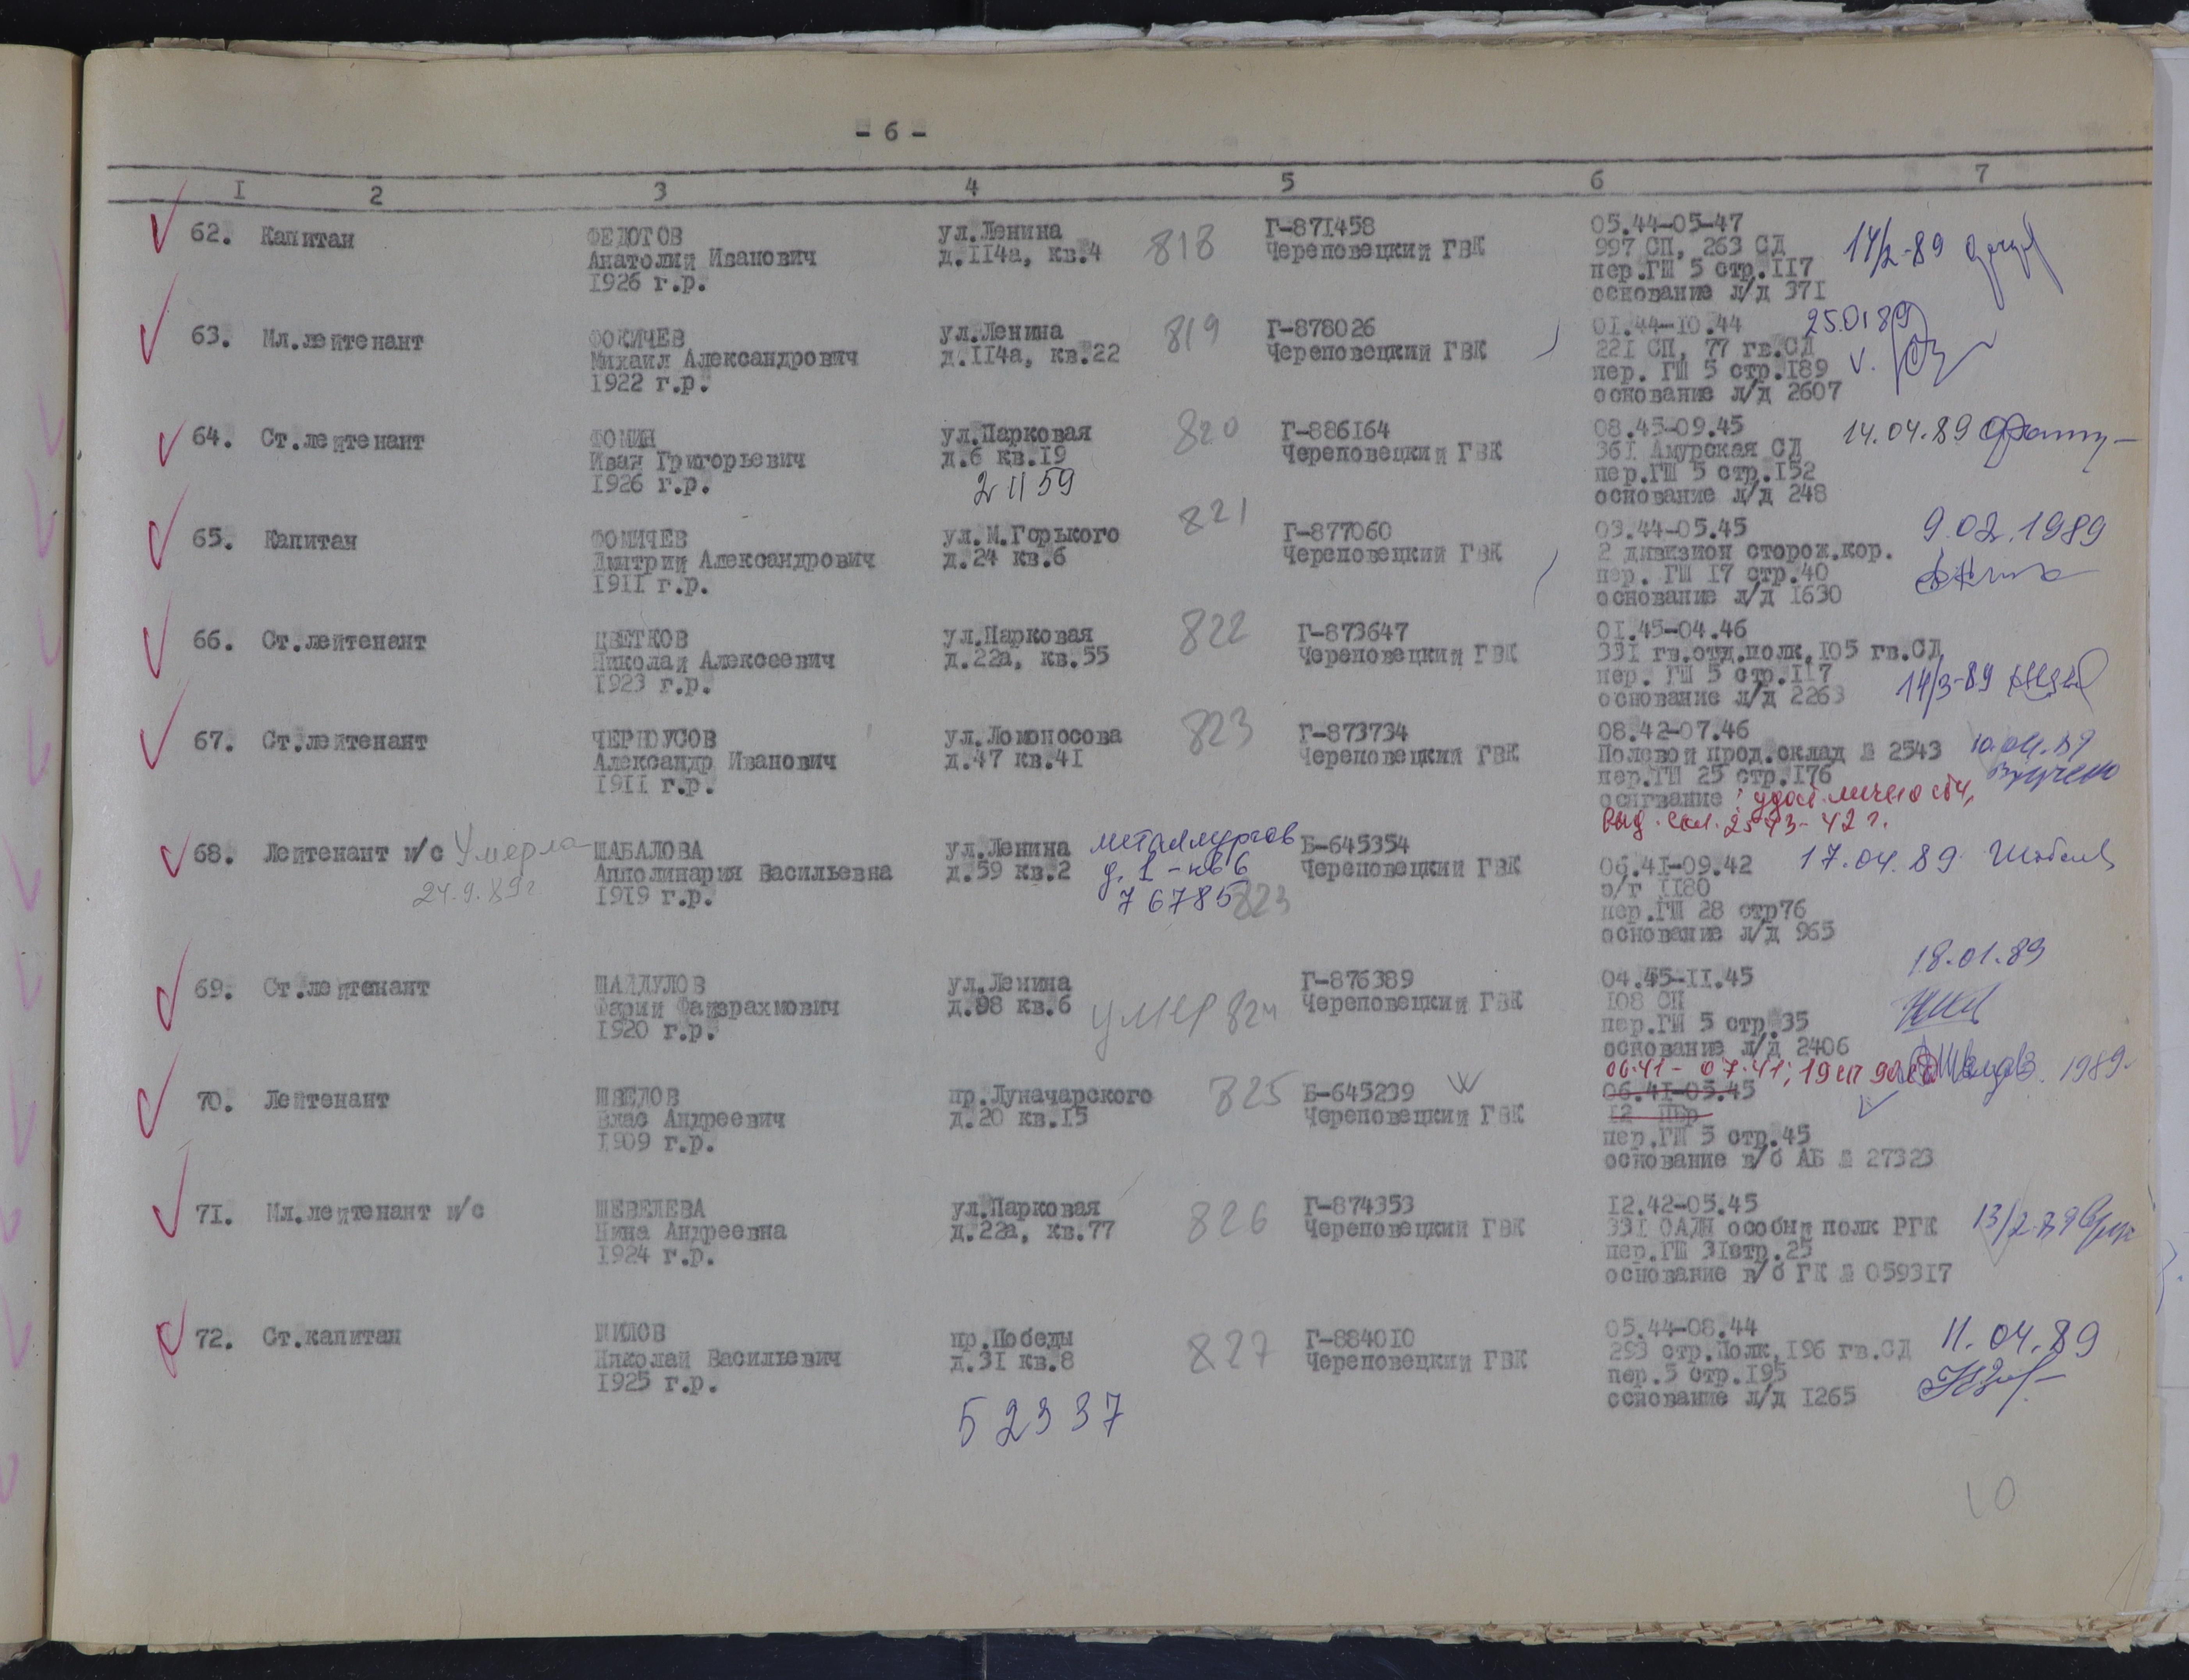 - 6 -
I 2 3 4 5 6 7
62. Капитан ФЕДОТОВ ул.Ленина 818 Г-871458 05.44-05-47
Анатолий Иванович д.114а, кв.4 Череповецкий ГВК 997 СП, 263 СД 14/2-89
1926 г.р. пер.ГШ 5 стр.117
основание л/д 371
63. Мл.лейтенант ФОКИЧЕВ ул.Ленина 819 Г-878026 01.44-10.44 25.01 89
Михаил Александрович д.114а, кв.22 Череповецкий ГВК 221 СП, 77 гв.СД
1922 г.р. пер. ГШ 5 стр.189
основание л/д 2607
64. Ст.лейтенант ФОМИН ул.Парковая 820 Г-886164 08.45-09.45 14.04.89
Иван Григорьевич д.6 кв.19 Череповецкий ГВК 361 Амурская СД
1926 г.р. 2 11 59 пер.ГШ 5 стр.152
основание л/д 248
65. Капитан ФОМИЧЕВ ул.М.Горького 821 Г-877060 03.44-05.45 9.02.1989
Дмитрий Александрович д.24 кв.6 Череповецкий ГВК 2 дивизион сторож.кор.
1911 г.р. пер. ГШ 17 стр.40
основание л/д 1630
66. Ст.лейтенант ЦВЕТКОВ ул.Парковая 822 Г-873647 01.45-04.46
Николай Алексеевич д.22а, кв.55 Череповецкий ГВК 331 гв.отд.полк,105 гв.СД
1923 г.р. пер. ГШ 5 стр.117
основание л/д 2263 14/3-89
67. Ст.лейтенант ЧЕРНОУСОВ ул.Ломоносова 823 Г-873734 08.42-07.46
Александр Иванович д.47 кв.41 Череповецкий ГВК Полевой прод.склад № 2543 10.04.89
1911 г.р. пер.ГШ 25 стр.176 вручено
основание : удост.
скл. 2543-42 г.
68. Лейтенант м/с Умерла ШАБАЛОВА ул.Ленина металлургов Б-645354
Апполинария Васильевна д.59 кв.2 д. 1 - кв 6 Череповецкий ГВК 06.41-09.42 17.04.89
24.9.89г 1919 г.р. 76785 823 э/г 1180
пер.ГШ 28 стр76
основание л/д 965
69. Ст.лейтенант ШАЙДУЛОВ ул.Ленина Г-876389 04.45-11.45 18.01.89
Фарий Фаизрахмович д.98 кв.6 умер 824 Череповецкий ГВК 108 СП
1920 г.р. пер.ГШ 5 стр.35
основание л/д 2406
06.41 - 07.41; 19 сп 90 сд
70. Лейтенант ШВЕДОВ пр.Луначарского 825 Б-645239 06.41-05.45 1989.
Влас Андреевич д.20 кв.15 Череповецкий ГВК 12 ПБр
1909 г.р. пер.ГШ 5 стр.45
основание в/б АБ № 27323
71. Мл.лейтенант м/с ШЕВЕЛЕВА ул.Парковая 826 Г-874353 12.42-05.45
Нина Андреевна д.22а, кв.77 Череповецкий ГВК 331 ОАДН особый полк РГК 13/2-89
1924 г.р. пер.ГШ 31стр.25
основание в/б ГК № 059317
72. Ст.капитан ШИЛОВ пр.Победы 827 Г-884010 05.44-08.44 11.04.89
Николай Васильевич д.31 кв.8 Череповецкий ГВК 293 стр.Полк,196 гв.СД
1925 г.р. пер.5 стр.195
основание л/д 1265
52337
10